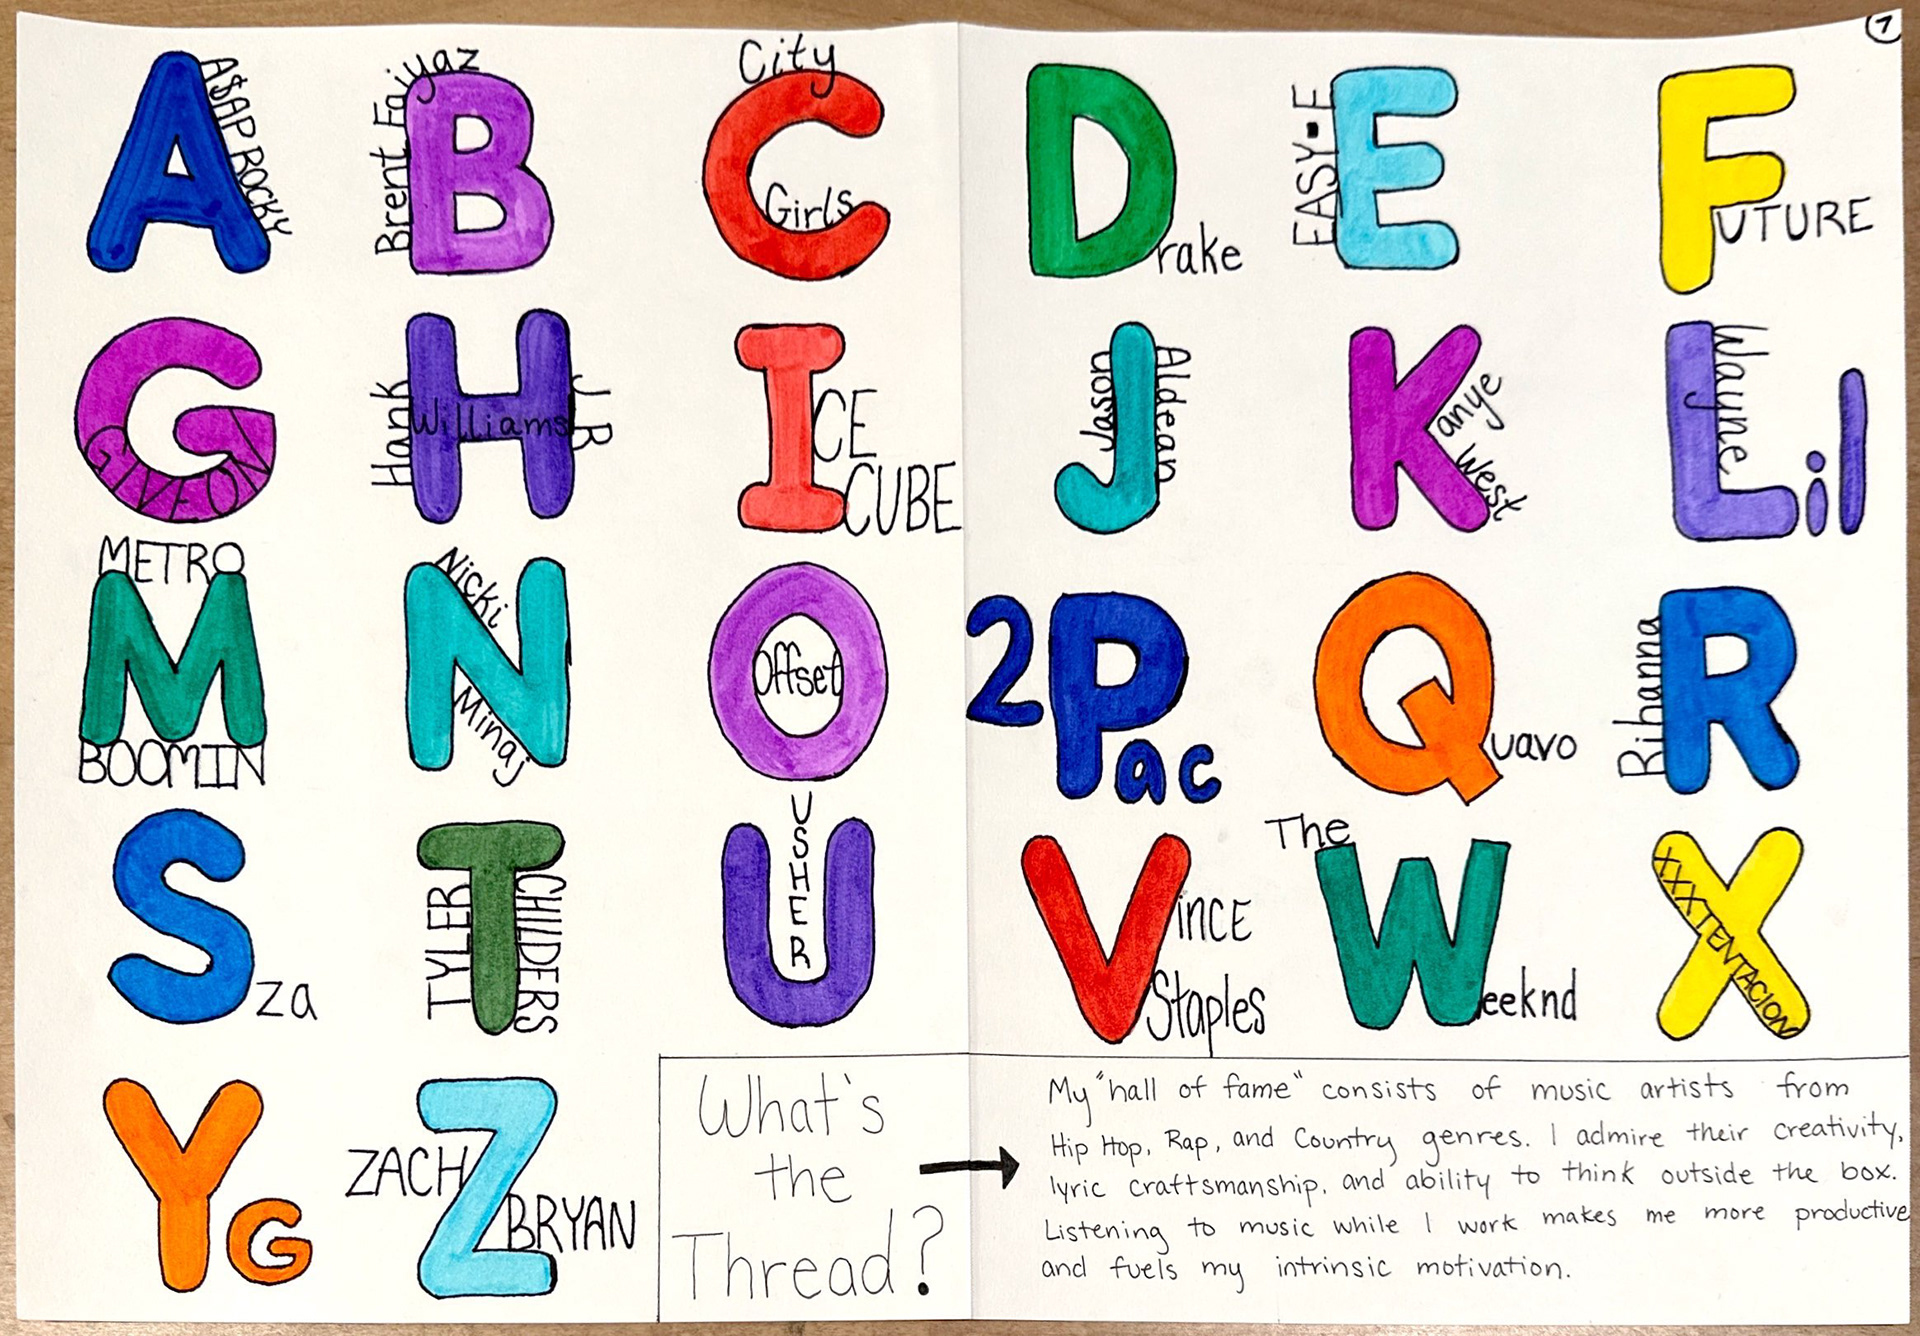 7
A A$AP ROCKY
Brent Faiyaz B
City C Girls
Drake
EASY-E E
FUTURE
G GIVEON
Hank H Williams JR
ICE CUBE
Jason J Aldean
Kanye West
Lil Wayne
METRO M BOOMIN
Nicki N Minaj
O Offset
2Pac
Quavo
Rihanna R
Sza
TYLER T CHILDERS
USHER U
Vince Staples
The Weeknd
X XXXTENTACION
YG
ZACH Z BRYAN
What's
the
Thread?
My "hall of fame" consists of music artists from
Hip Hop, Rap, and Country genres. I admire their creativity,
lyric craftsmanship, and ability to think outside the box.
Listening to music while I work makes me more productive
and fuels my intrinsic motivation.